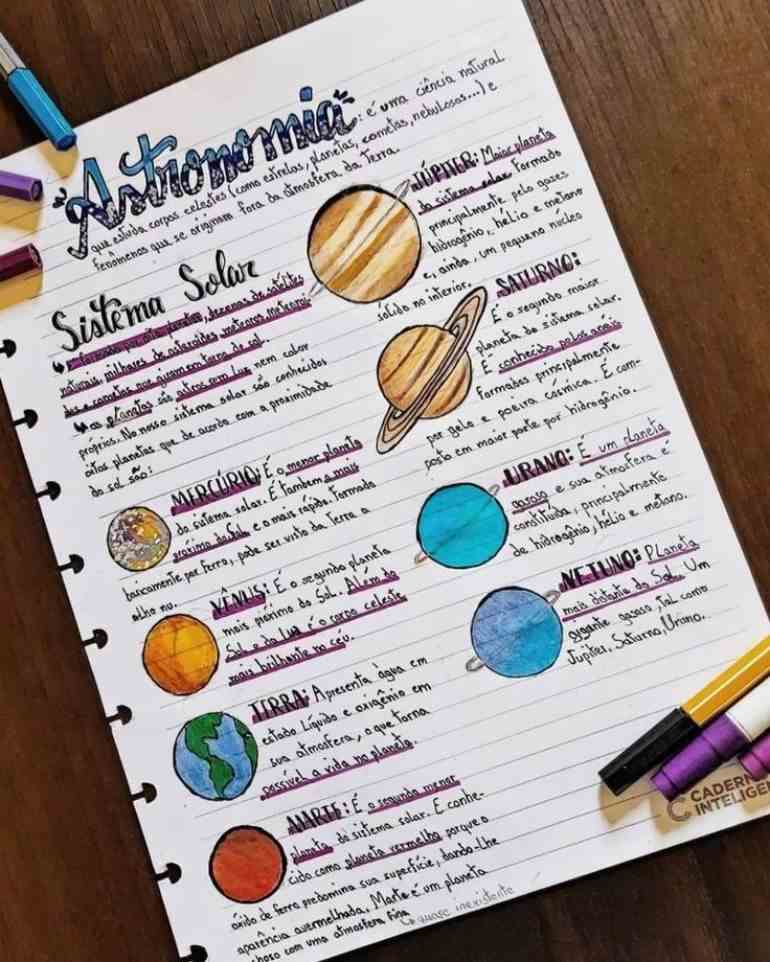 Astronomia: é uma ciência natural
que estuda corpos celestes (como estrelas, planetas, cometas, nebulosas...) e
fenômenos que se originam fora da atmosfera da Terra.
Sistema Solar
é formado por oito planetas, dezenas de satélites
naturais, milhares de asteróides, meteoros, meteori-
des e cometas que giram em torno do sol.
os planetas são astros sem luz nem calor
próprios. No nosso sistema solar são conhecidos
oitos planetas que de acordo com a proximidade
do sol são:
MERCÚRIO: É o menor planeta
do sistema solar. É também o mais
próximo do Sol e o mais rápido. Formado
basicamente por ferro, pode ser visto da Terra a
olho nu.
VÊNUS: É o segundo planeta
mais próximo do Sol. Além do
Sol e da Lua é o corpo celeste
mais brilhante no céu.
TERRA: Apresenta água em
estado líquido e oxigênio em
sua atmosfera, o que torna
possível a vida no planeta.
MARTE: É o segundo menor
planeta do sistema solar. É conhe-
cido como planeta vermelho porque o
óxido de ferro predomina sua superfície, dando-lhe
aparência avermelhada. Marte é um planeta
rochoso com uma atmosfera fina
quase inexistente
JÚPITER: Maior planeta
do sistema solar formado
principalmente pelo gases
hidrogênio, hélio e metano
e, ainda, um pequeno núcleo
sólido no interior.
SATURNO:
É o segundo maior
planeta do sistema solar.
É conhecido pelos anéis
formados principalmente
por gelo e poeira cósmica. É com-
posto em maior parte por hidrogênio.
URANO: É um planeta
gasoso e sua atmosfera é
constituída, principalmente
de hidrogênio, hélio e metano.
NETUNO: Planeta
mais distante do Sol. Um
gigante gasoso, tal como
Júpiter, Saturno, Urano.
CADERNO
INTELIGEN